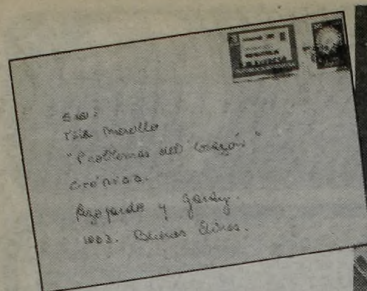 Sra:
Tita Merello
"Problemas del Corazón"
Crónica.
Azopardo y Garay.
1063. Buenos Aires.